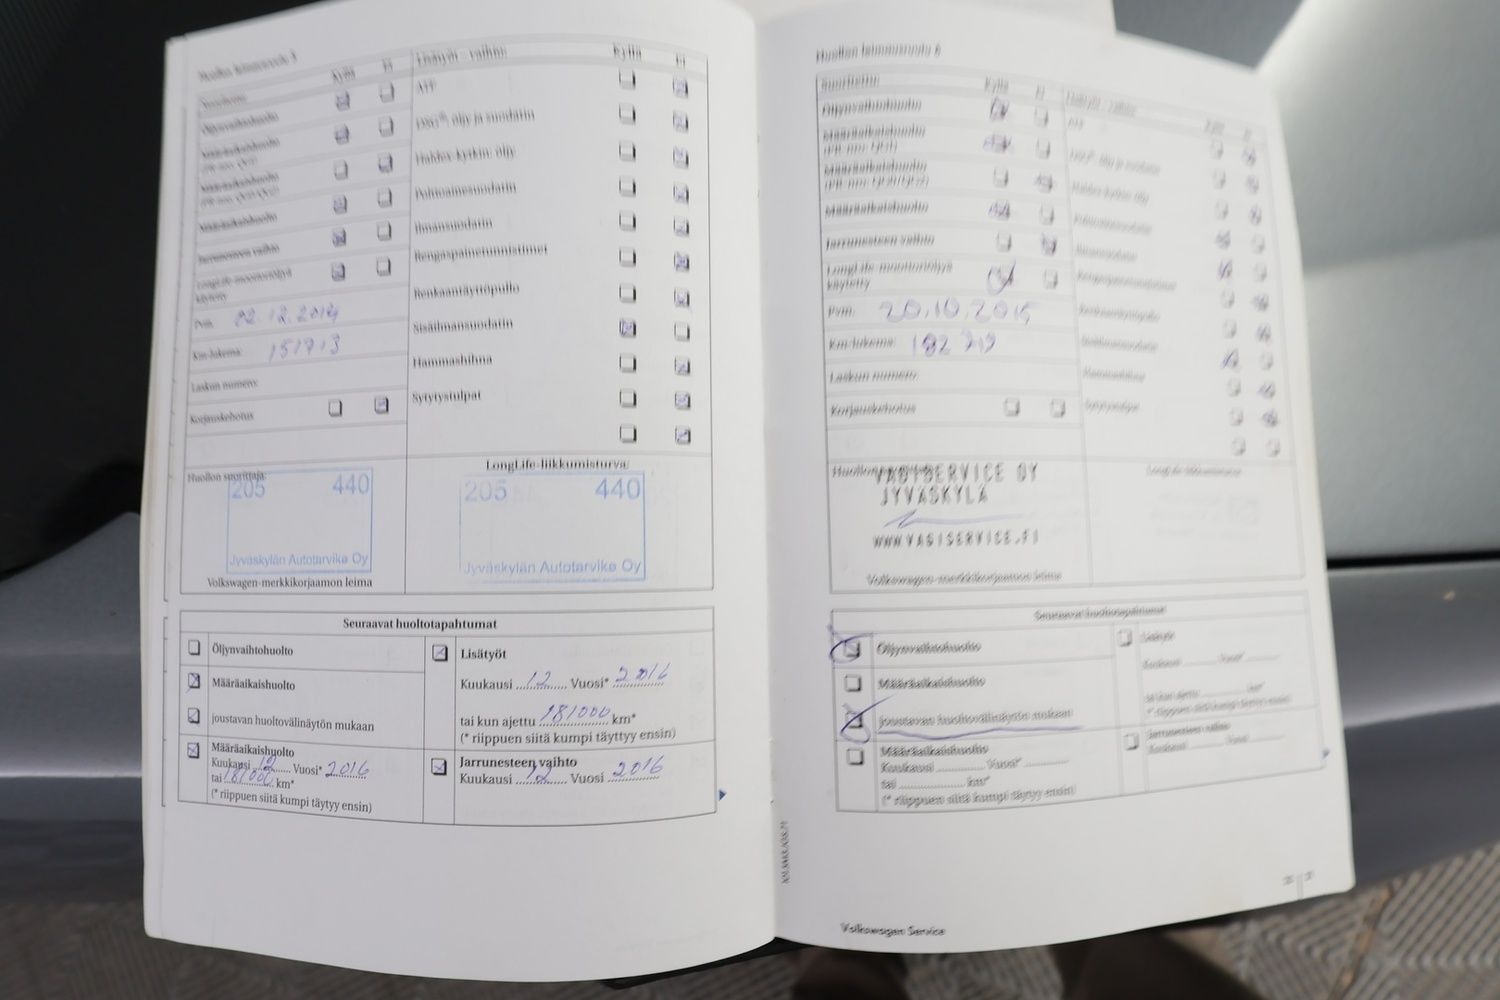 Huollon leimausruutu 5
Suoritettu: Kyllä Ei
Öljynvaihtohuolto
Määräaikaishuolto
Määräaikaishuolto
Määräaikaishuolto
Jarrunesteen vaihto
LongLife-moottoriöljyä
käytetty
Pvm: 02.12.2014
Km-lukema: 151713
Laskun numero:
Korjauskehotus
Lisätyöt - vaihto: Kyllä Ei
ATF
DSG®: öljy ja suodatin
Haldex-kytkin: öljy
Polttoainesuodatin
Ilmansuodatin
Rengaspainetunnistimet
Renkaantäyttöpullo
Sisäilmansuodatin
Hammashihna
Sytytystulpat
Huollon suorittaja:
205 440
Jyväskylän Autotarvike Oy
Volkswagen-merkkikorjaamon leima
LongLife-liikkumisturva:
205 440
Jyväskylän Autotarvike Oy
Seuraavat huoltotapahtumat
Öljynvaihtohuolto
Määräaikaishuolto
joustavan huoltovälinäytön mukaan
Määräaikaishuolto
Kuukausi 12 Vuosi* 2016
tai 181000 km*
(* riippuen siitä kumpi täytyy ensin)
Lisätyöt
Kuukausi 12 Vuosi* 2016
tai kun ajettu 181000 km*
(* riippuen siitä kumpi täyttyy ensin)
Jarrunesteen vaihto
Kuukausi 12 Vuosi 2016
Huollon leimausruutu 6
Suoritettu: Kyllä Ei
Öljynvaihtohuolto
Määräaikaishuolto
Määräaikaishuolto
Määräaikaishuolto
Jarrunesteen vaihto
LongLife-moottoriöljyä
käytetty
Pvm: 20.10.2015
Km-lukema:
Laskun numero:
Korjauskehotus
ATF
VAGISERVICE OY
JYVÄSKYLÄ
WWW.VAGISERVICE.FI
Volkswagen-merkkikorjaamon leima
Seuraavat huoltotapahtumat
Öljynvaihtohuolto
Määräaikaishuolto
joustavan huoltovälinäytön mukaan
Määräaikaishuolto
Kuukausi Vuosi*
tai km*
(* riippuen siitä kumpi täytyy ensin)
Lisätyöt
Kuukausi Vuosi*
tai kun ajettu km*
Jarrunesteen vaihto
Kuukausi Vuosi
Volkswagen Service